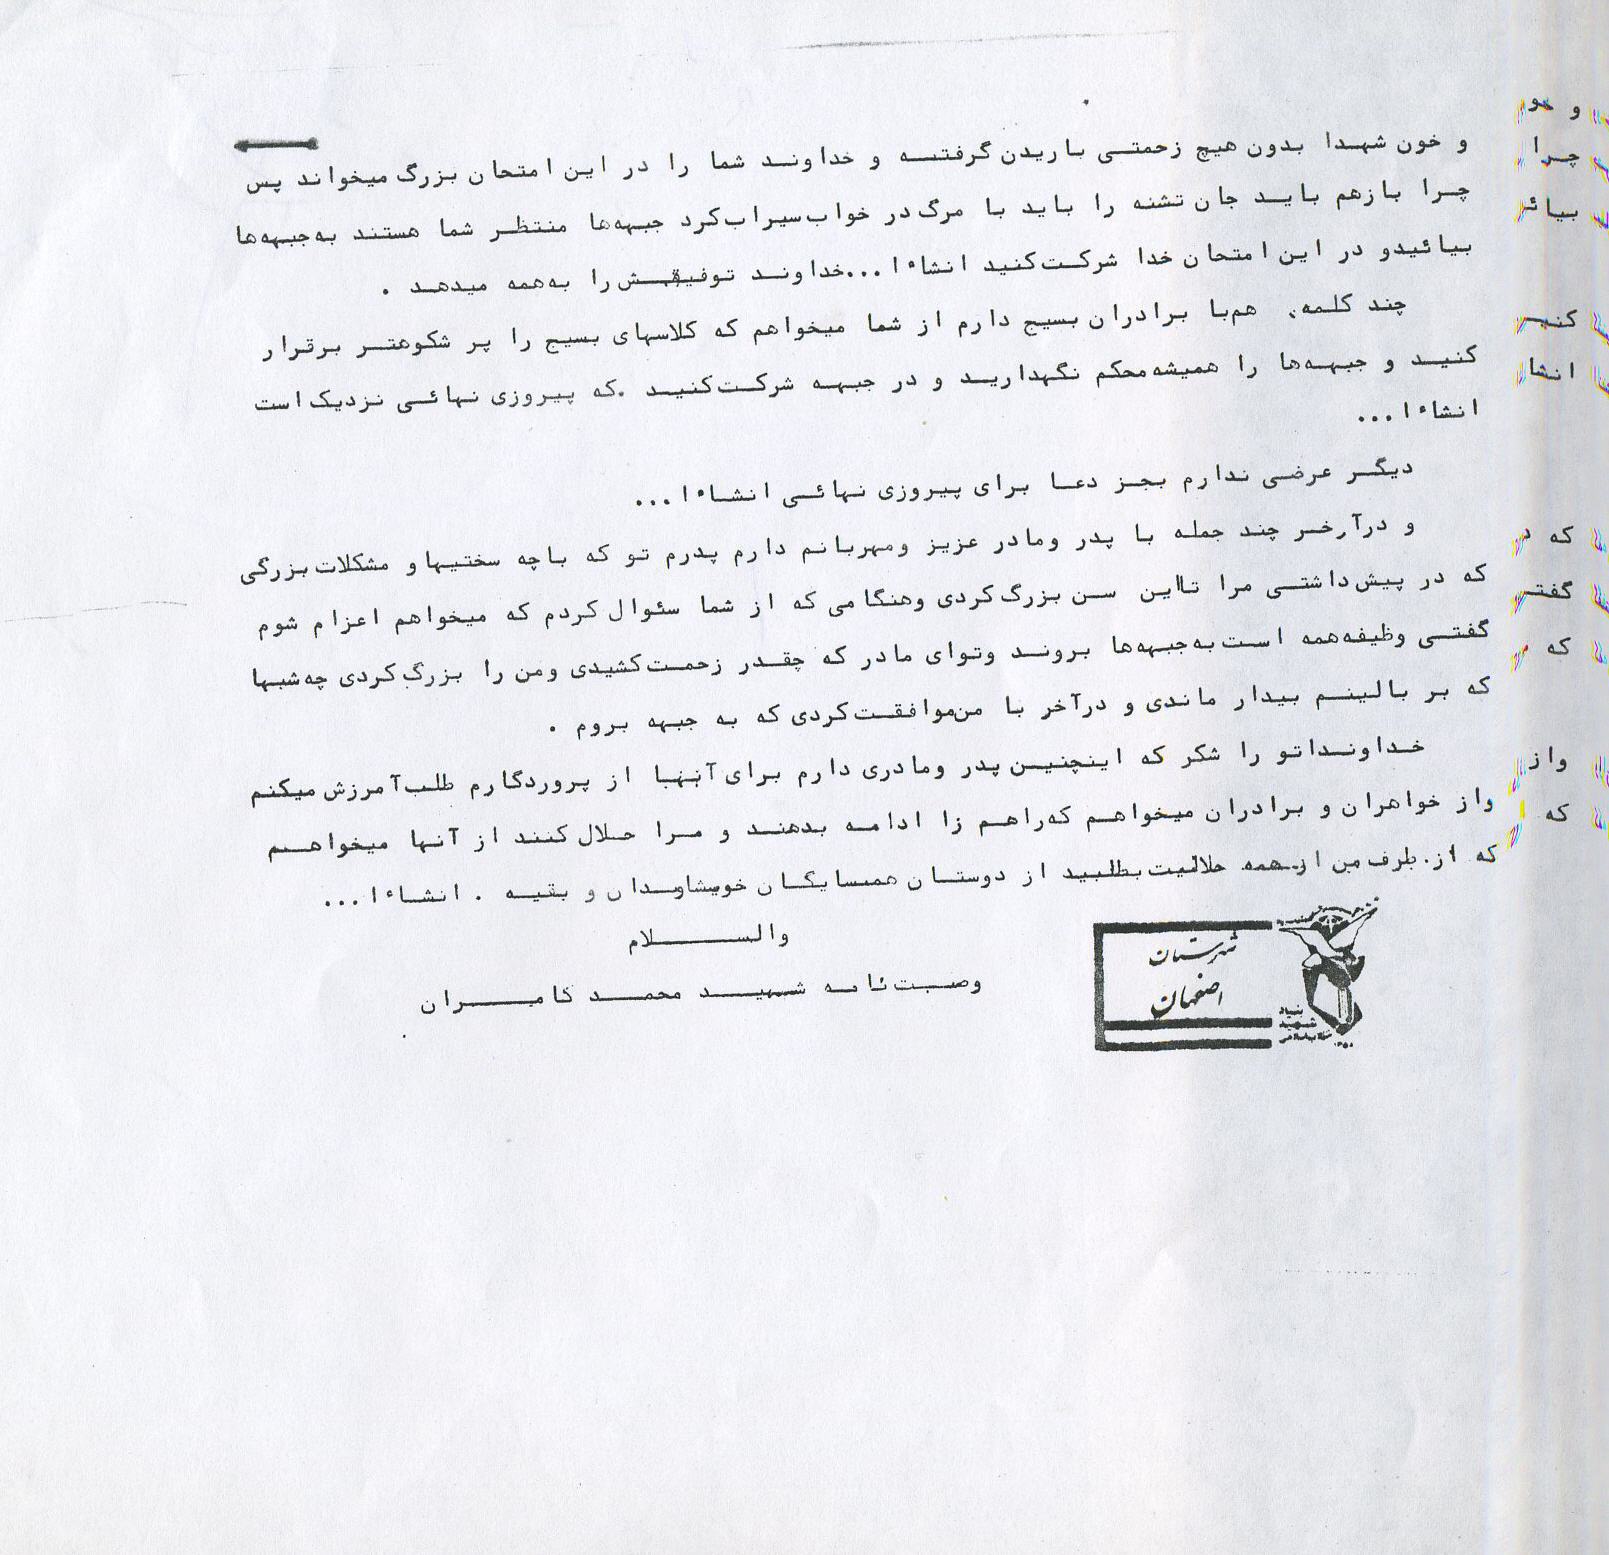 و خون شهدا بدون هیچ زحمتی باریدن گرفته و خداوند شما را در این امتحان بزرگ میخواند پس
چرا بازهم باید جان تشنه را باید با مرگ در خواب سیراب کرد جبهه‌ها منتظر شما هستند به جبهه‌ها
بیائیدو در این امتحان خدا شرکت کنید انشاء ا...خداوند توفیقش را به همه میدهد .
چند کلمه هم با برادران بسیج دارم از شما میخواهم که کلاسهای بسیج را پر شکوهتر برقرار
کنید و جبهه‌ها را همیشه محکم نگهدارید و در جبهه شرکت کنید .که پیروزی نهائی نزدیک است
انشاء ا...
دیگر عرضی ندارم بجز دعا برای پیروزی نهائی انشاء ا...
و درآرخر چند جمله با پدر ومادر عزیز ومهربانم دارم پدرم تو که باچه سختیها و مشکلات بزرگی
که در پیش داشتی مرا تااین سن بزرگ کردی وهنگامی که از شما سئوال کردم که میخواهم اعزام شوم
گفتی وظیفه همه است به جبهه‌ها بروند وتوای مادر که چقدر زحمت کشیدی ومن را بزرگ کردی چه شبها
که بر بالینم بیدار ماندی و درآخر با من موافقت کردی که به جبهه بروم .
خداونداتو را شکر که اینچنین پدر ومادری دارم برای آنها از پروردگارم طلب آمرزش میکنم
واز خواهران و برادران میخواهم که راهم را ادامه بدهند و مرا حلال کنند از آنها میخواهم
که از طرف من از همه حلالیت بطلبید از دوستان همسایگان خویشاوندان و بقیه . انشاء ا...
والسلام
وصیت نامه شهید محمد کامران
شهرستان
اصفهان
بنیاد
شهید
انقلاب اسلامی